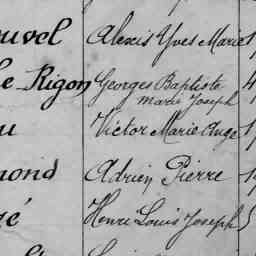 ouvel Alexis Yves Marie
e Rigon Georges Baptiste
Marie Joseph
u Victor Marie Ange
mond Adrien Pierre
é Henri Louis Joseph